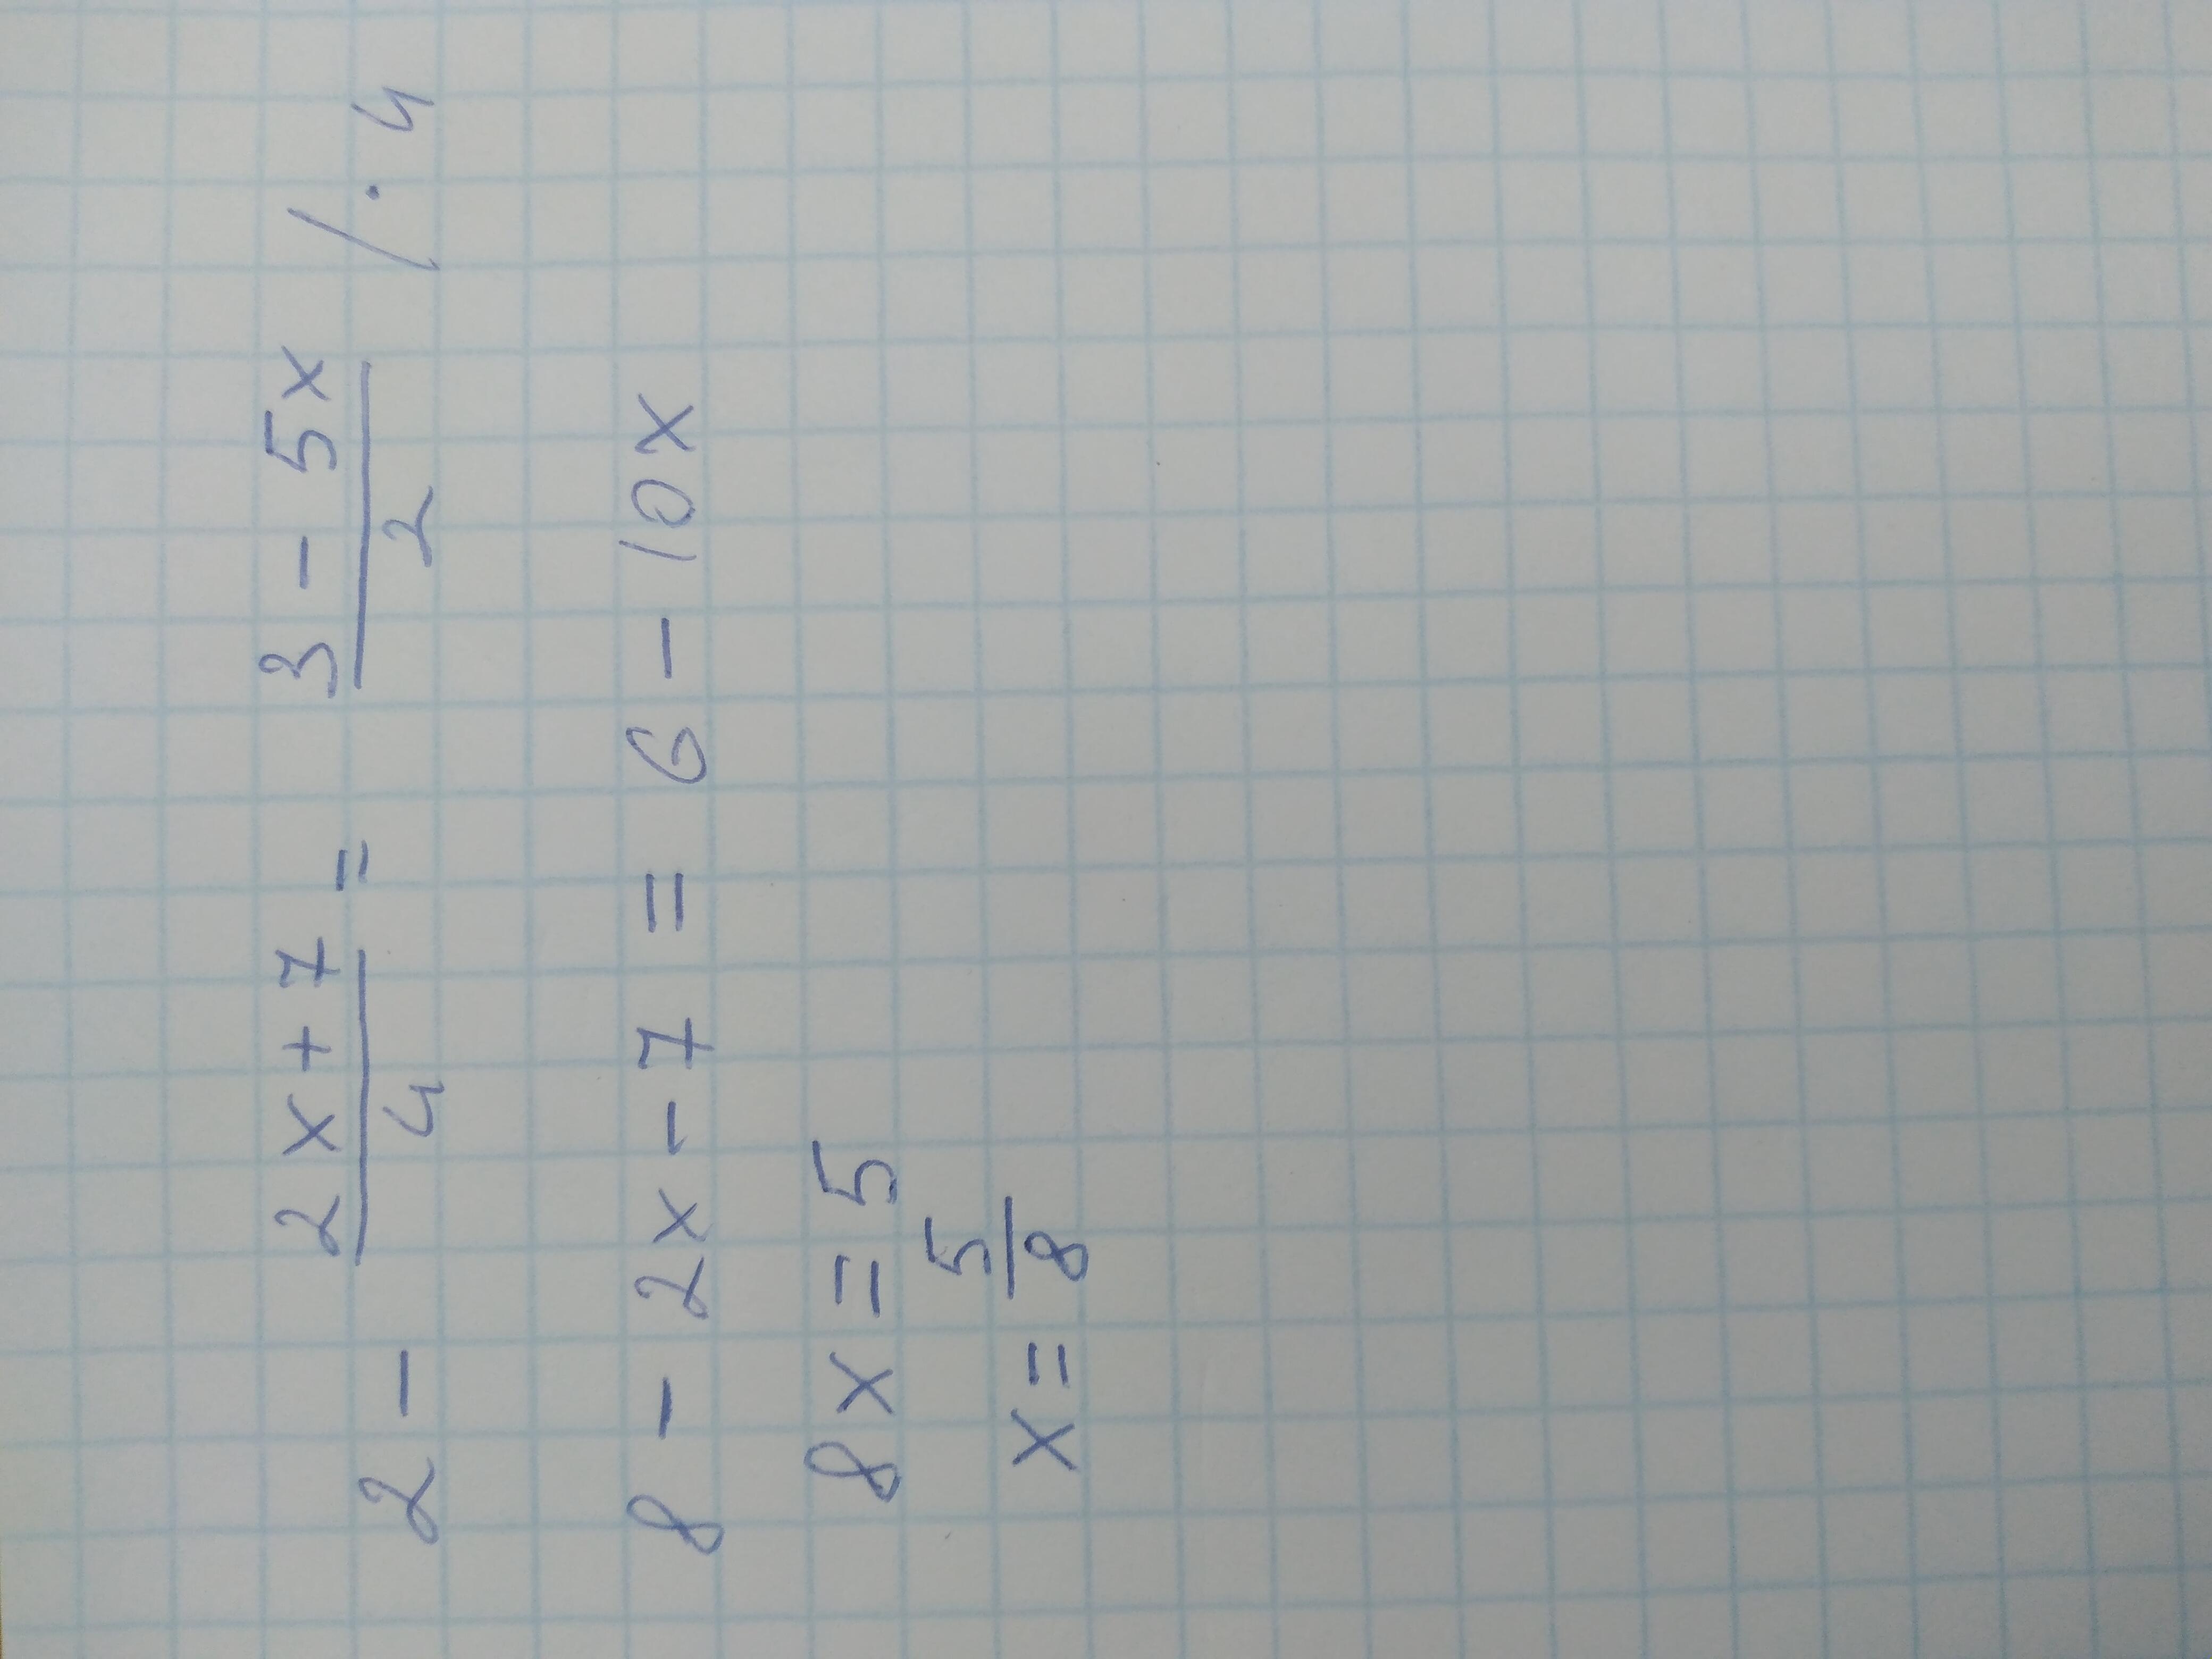 2 - (2x+7)/4 = (3-5x)/2 /·4
8 - 2x - 7 = 6 - 10x
8x = 5
x = 5/8